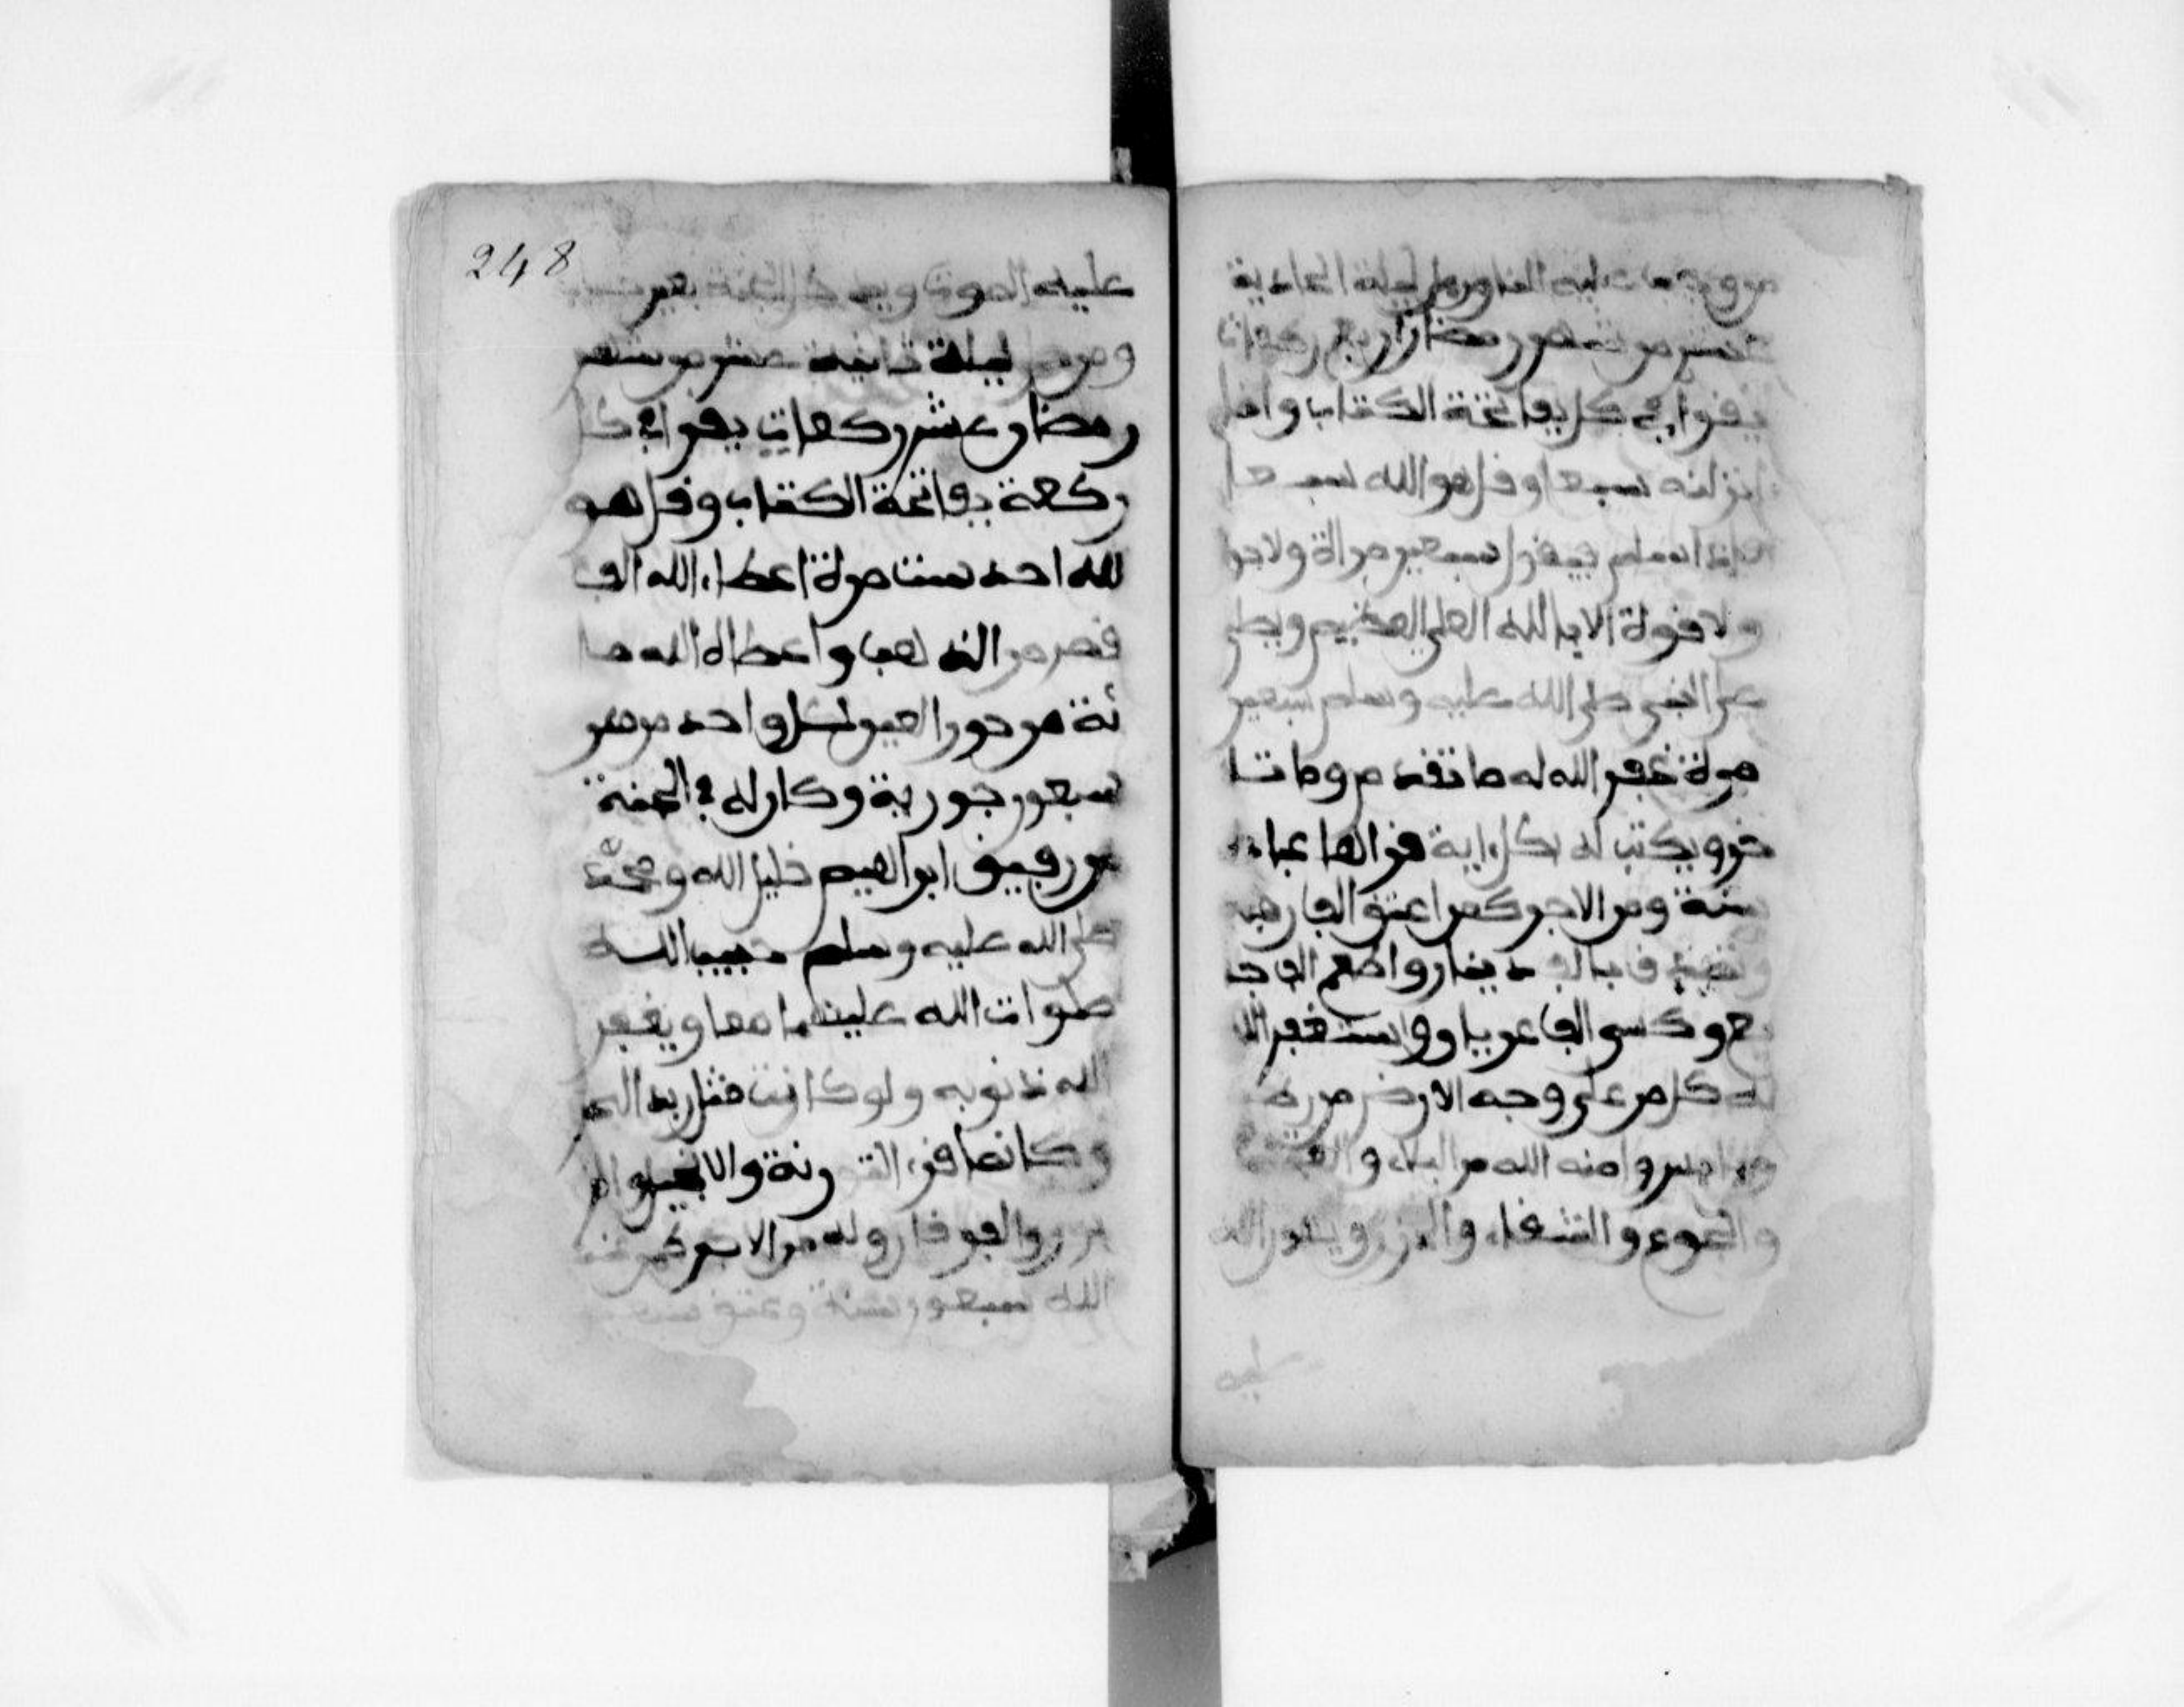 عليه الفا ومن صلى ليلة الحادية
عشر من شهر رمضان اربع ركعات
يقرا في كل بفاتحة الكتاب وانا
انزلنه سبعا وقل هو الله سبعا
فاذا سلم فيقول سبعين مراة ولا حول
ولا قوة الا بالله العلي العظيم ويصلي
على النبي صلى الله عليه وسلم سبعين
مرة غفر الله له ما تقدم من وما تا
خر ويكتب له بكل اية قراها عبادة
سنة ومن الاجر كمن اعتق الف رقبة
وتصدق بالف دينار واطعم الف جا
يع وكسى الف عريا و واستغفر الله
له كل من على وجه الارض
وامنه الله من البلاء و
والجوع والشقاء و
عليه
248
عليه الموت ويدخل الجنة بغير حساب
ومن صلى ليلة ثانية عشر من شهر
رمضان عشر ركعات يقرا في كل
ركعة بفاتحة الكتاب وقل هو
الله احد ست مرة اعطاء الله الف
قصر من الذهب واعطاه الله ما
ئة من حور العين لكل واحد منهن
سبعون جورية وكان له في الجنة
رفيق ابراهيم خليل الله ومحمد
صلى الله عليه وسلم حبيب الله
صلوات الله عليهما معا ويغفر
الله ذنوبه ولو كانت مثل زبد البحر
وكانما قرء التورية والانجيل وا
لزبور والفرقان وله من الاجر كمن
الله سبعون سنة وعتق سبعين